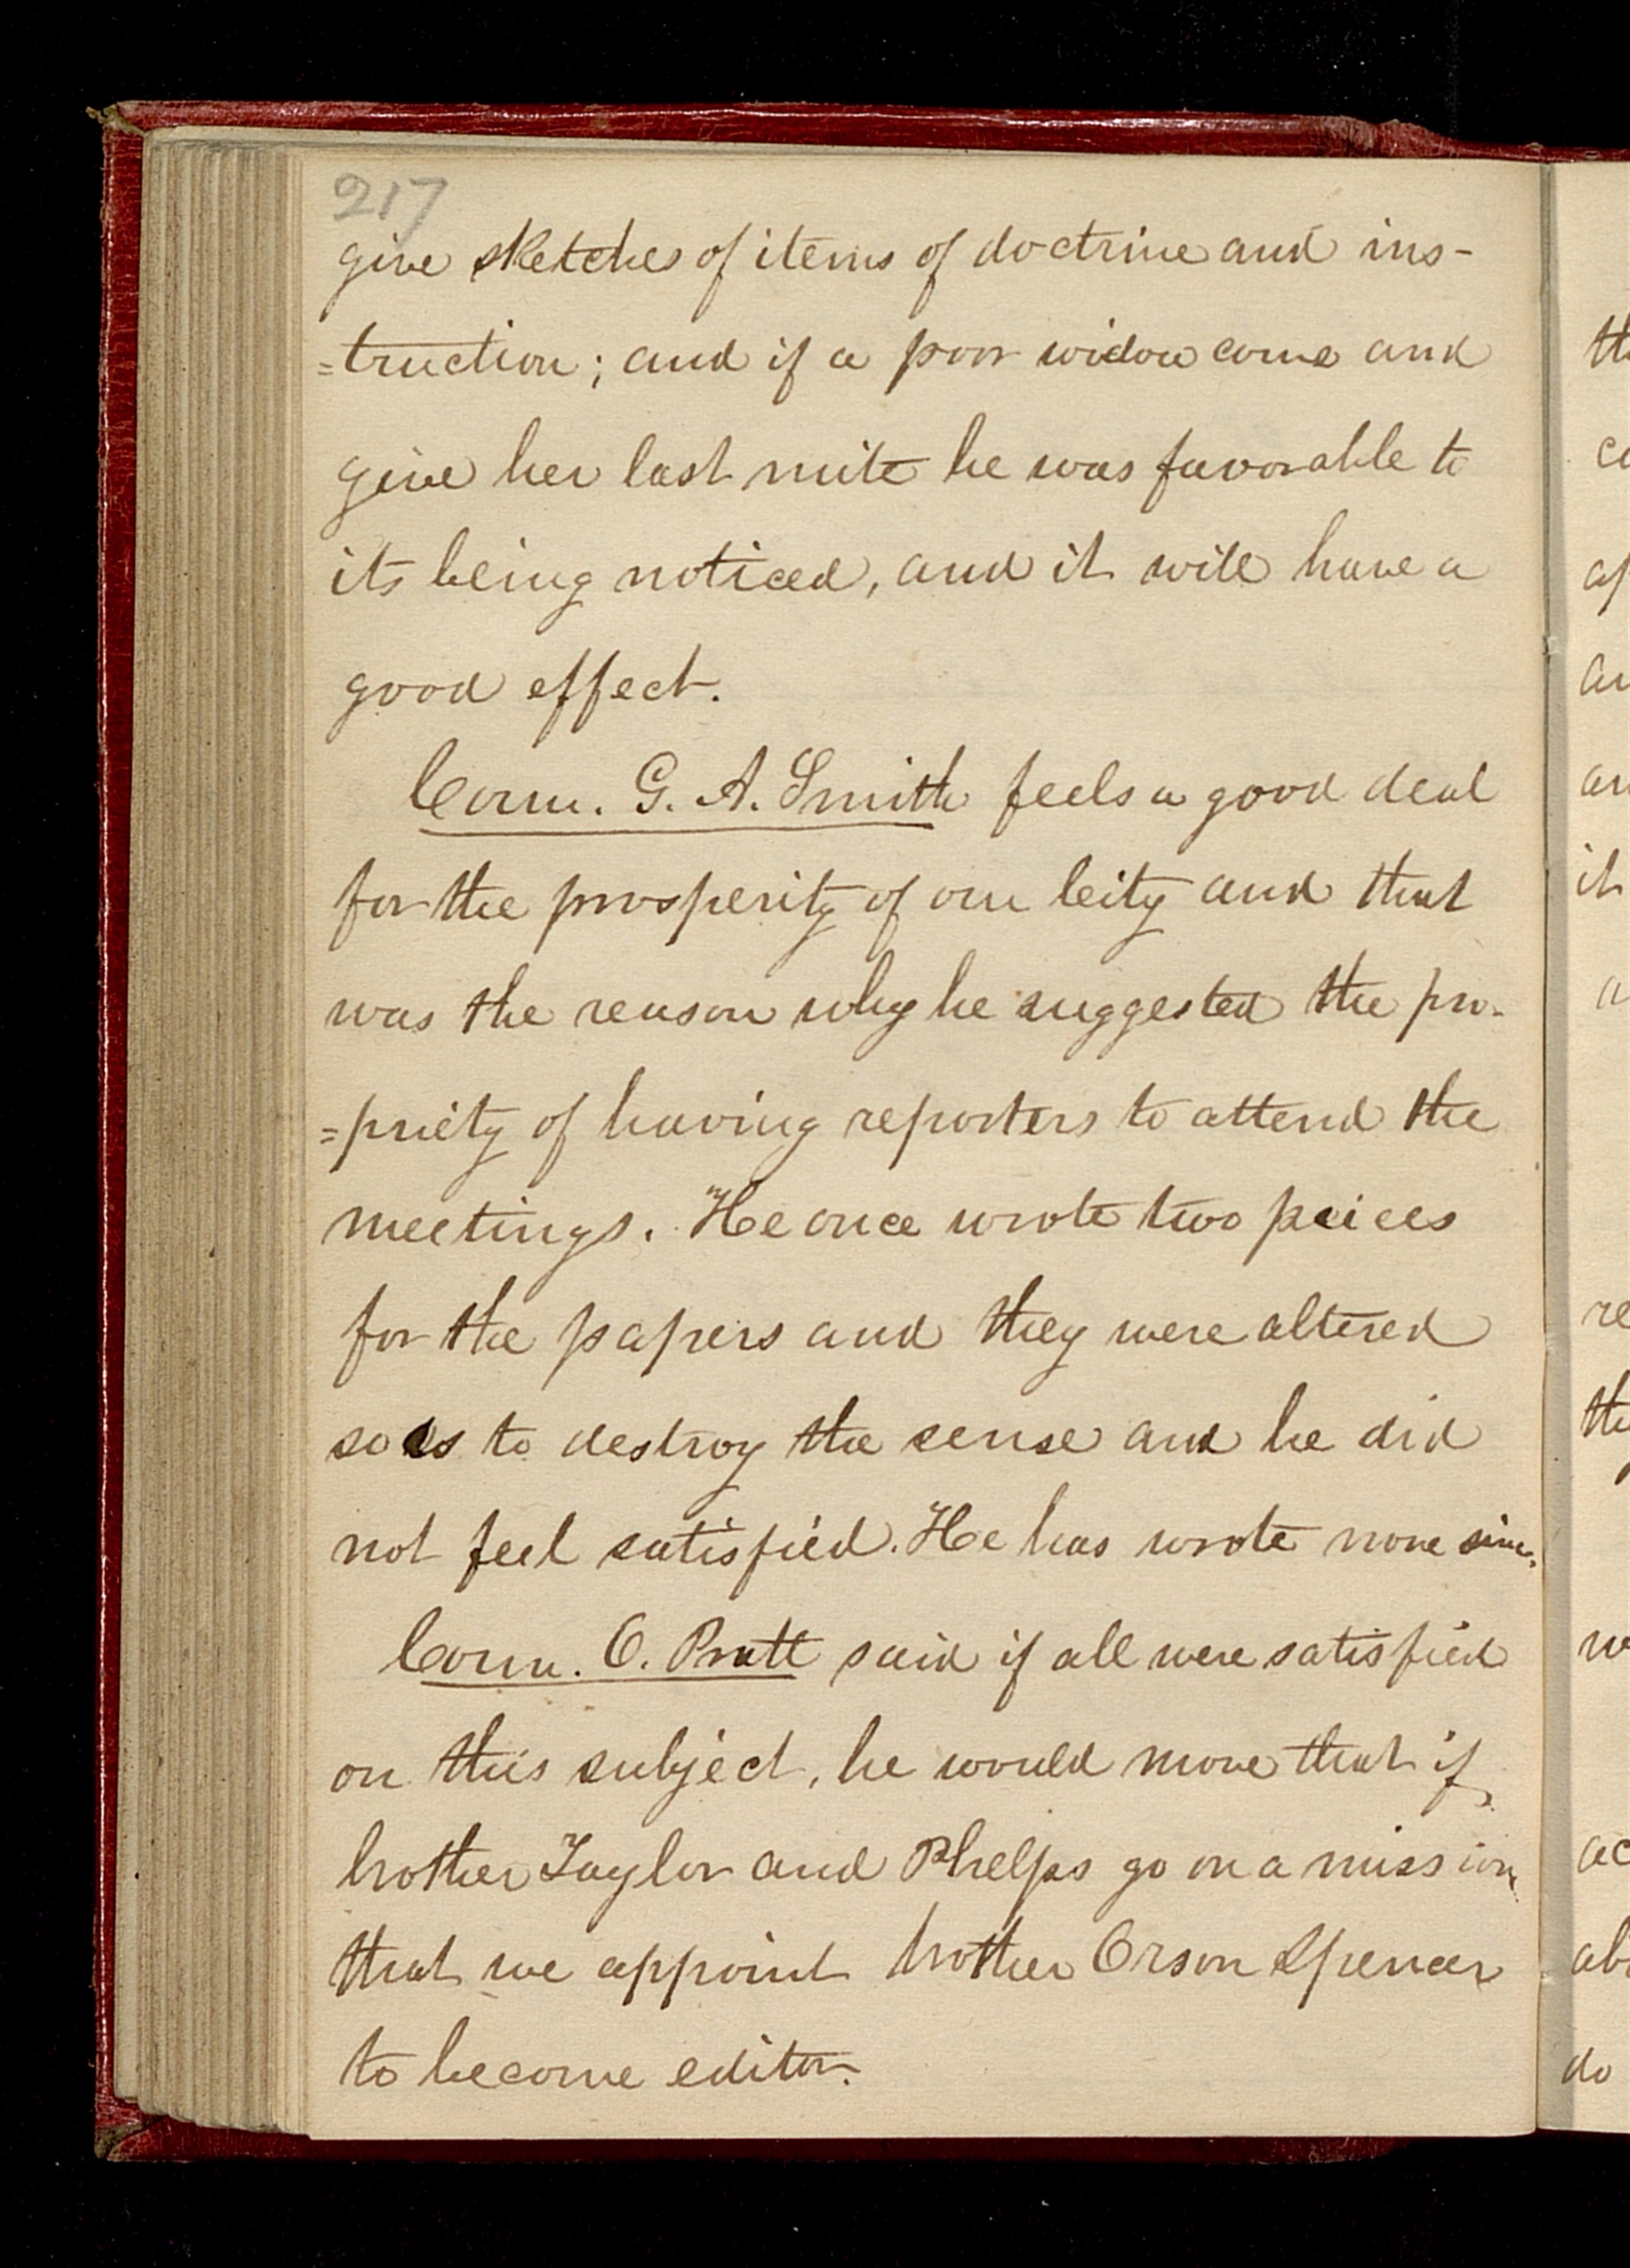 217
give sketches of items of doctrine and ins-
=truction; and if a poor widow come and
give her last mite he was favorable to
its being noticed, and it will have a
good effect.
Coun. G. A. Smith feels a good deal
for the prosperity of our City and that
was the reason why he suggested the pro-
=priety of having reporters to attend the
meetings. He once wrote two peices
for the papers and they were altered
so as to destroy the sense and he did
not feel satisfied. He has wrote none since.
Coun. O. Pratt said if all were satisfied
on this subject, he would move that if
brother Taylor and Phelps go on a mission,
that we appoint brother Orson Spencer
to become editor.